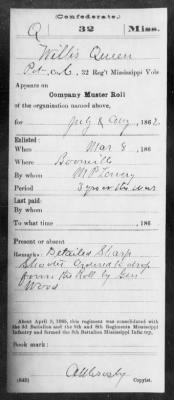 (Confederate.)
Q 32 Miss.
Willis Queen
Pvt., Co. C, 32 Reg't Mississippi Vols
Appears on
Company Muster Roll
of the organization named above,
for July & Aug, 1862.
Enlisted:
When Mar 8, 186
Where Booneville
By whom M P Lowrey
Period 3 yrs or the War
Last paid:
By whom
To what time , 186
Present or absent
Remarks: Detailed Sharp
Shooter Ordered to drop
from the Roll by Gen
Wood
About April 9, 1865, this regiment was consolidated with
the 3d Battalion and the 5th and 8th Regiments Mississippi
Infantry and formed the 8th Battalion Mississippi Infantry.
Book mark:
(642) Copyist.